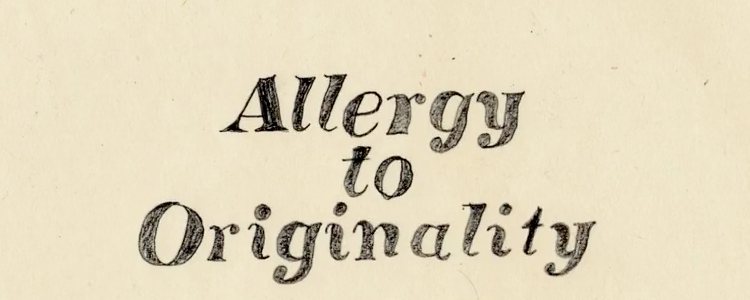 Allergy
to
Originality